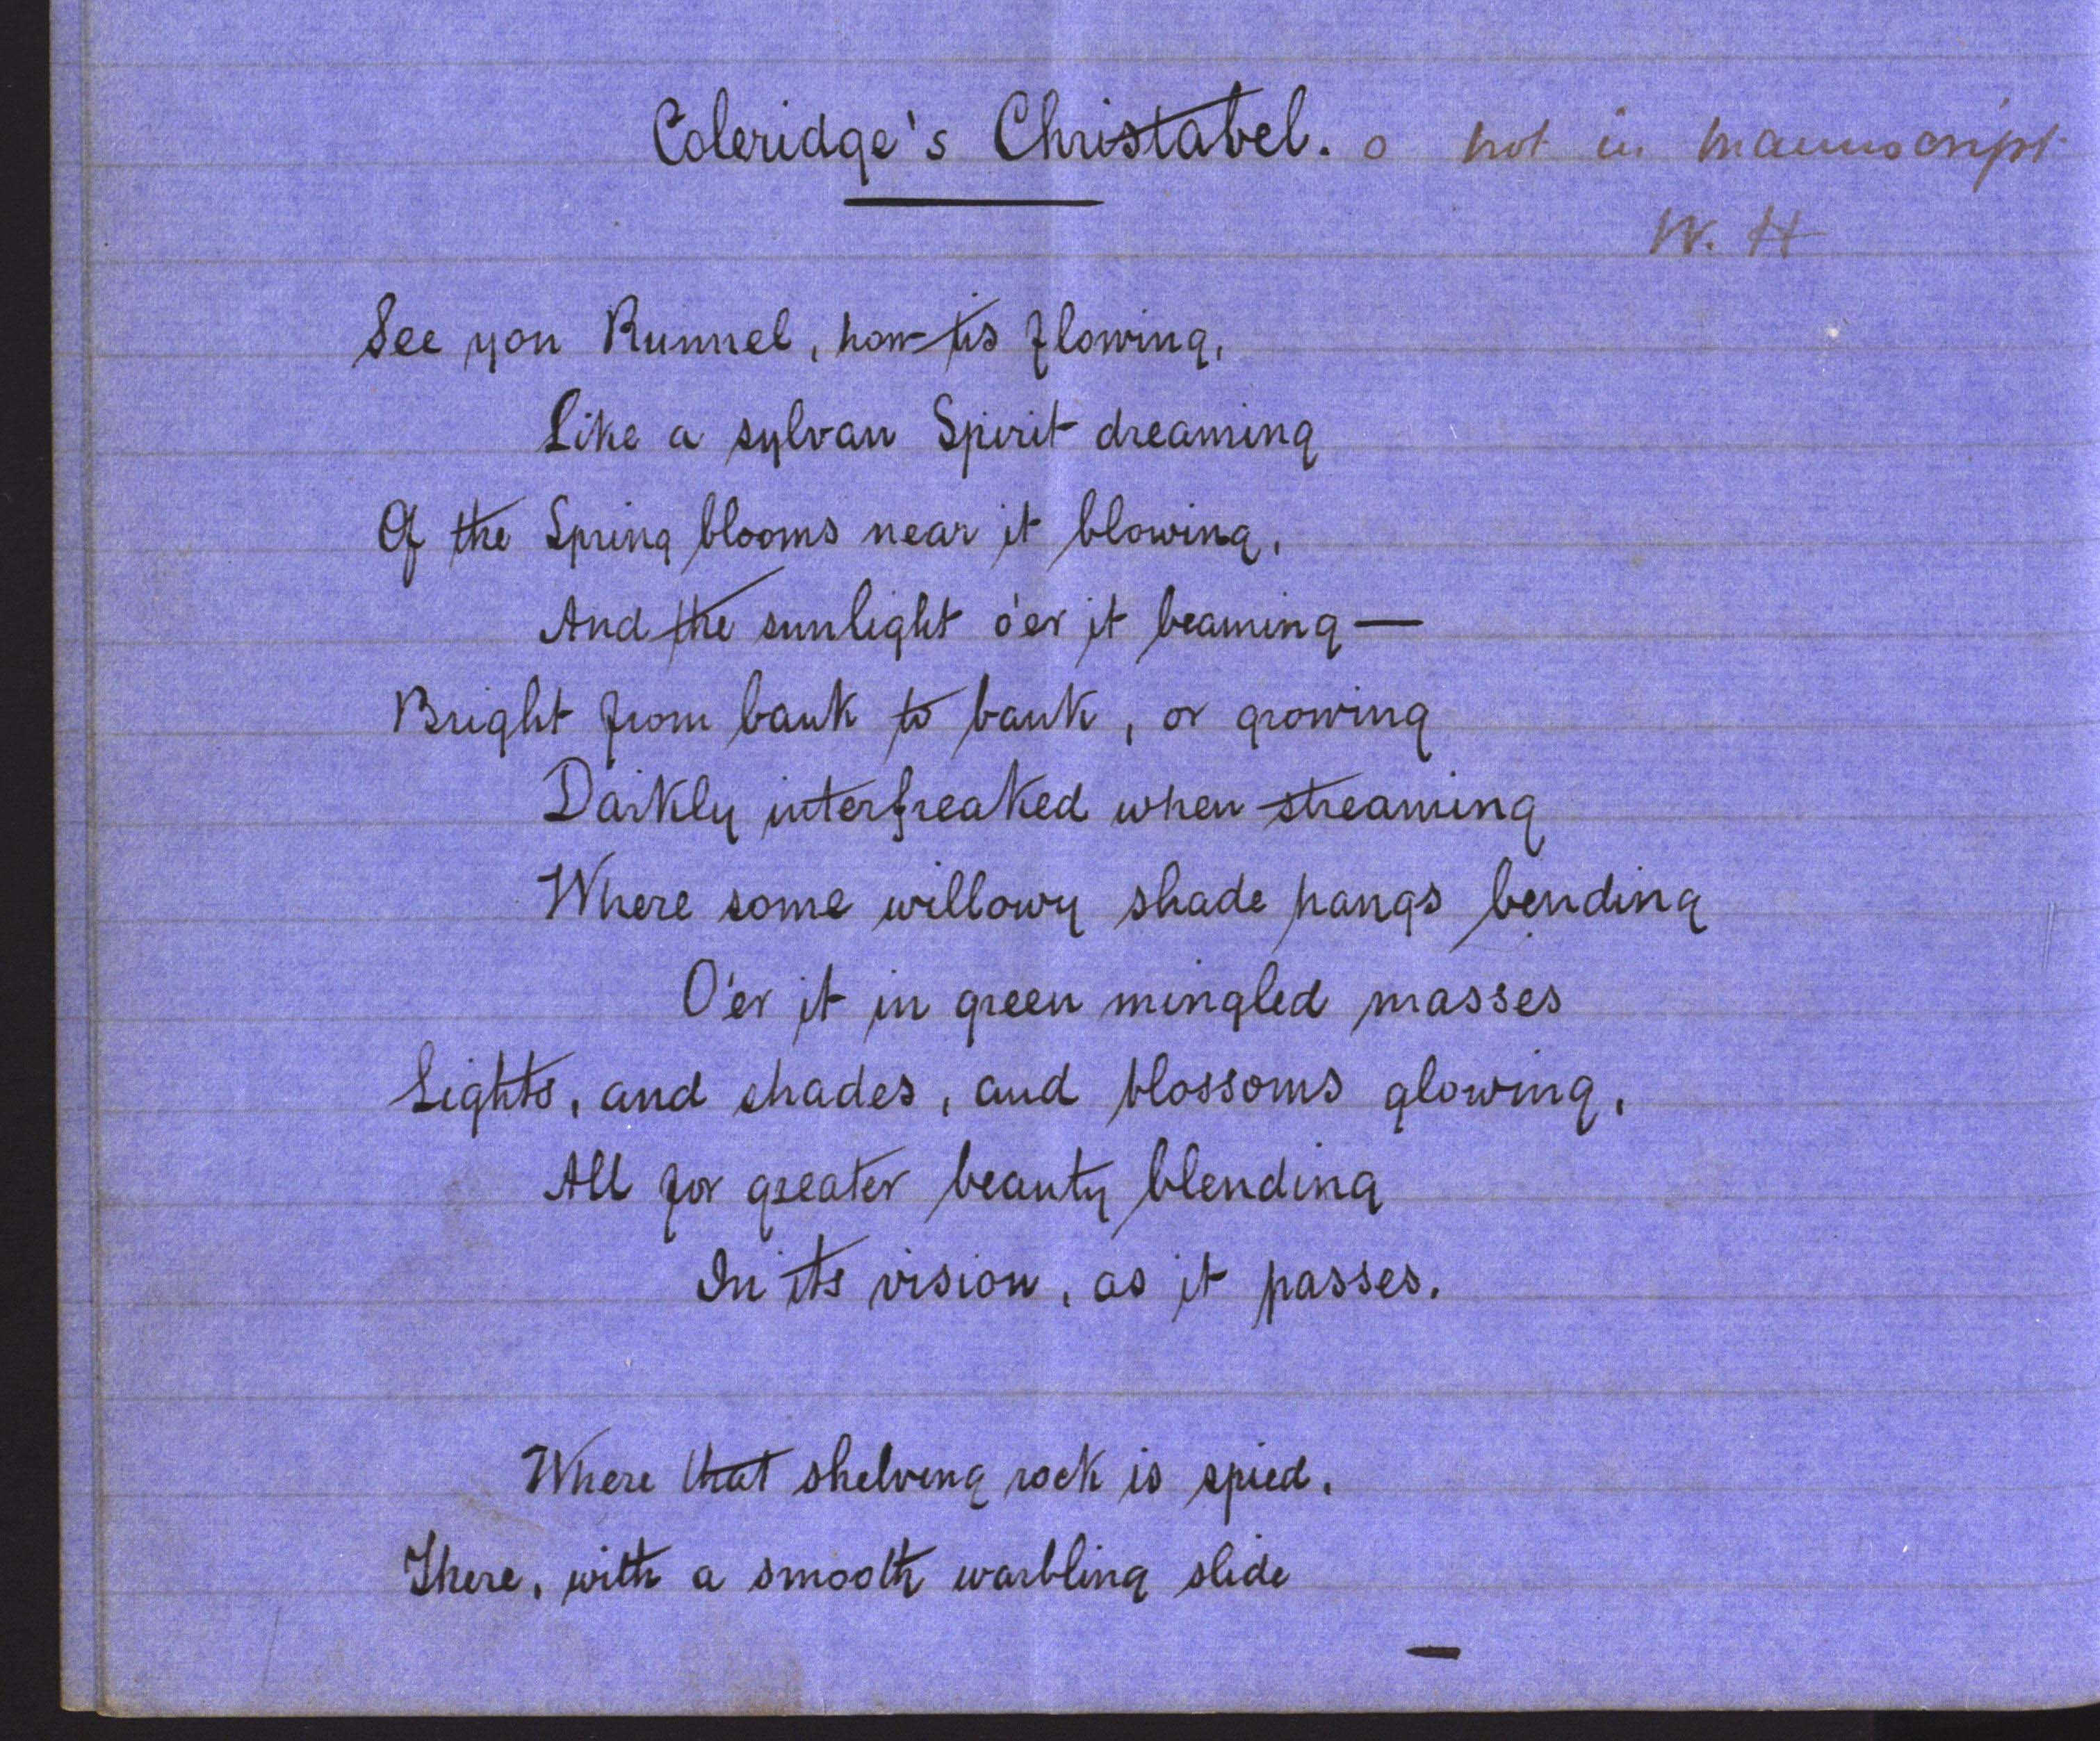 Coleridge's Christabel. o not in manuscript
W. H
See yon Runnel, how tis flowing,
Like a sylvan Spirit dreaming
Of the Spring blooms near it blowing,
And the sunlight o'er it beaming—
Bright from bank to bank, or growing
Darkly interfreaked when streaming
Where some willowy shade hangs bending
O'er it in green mingled masses
Lights, and shades, and blossoms glowing,
All for greater beauty blending
In its vision, as it passes.
Where that shelving rock is spied,
There, with a smooth warbling slide